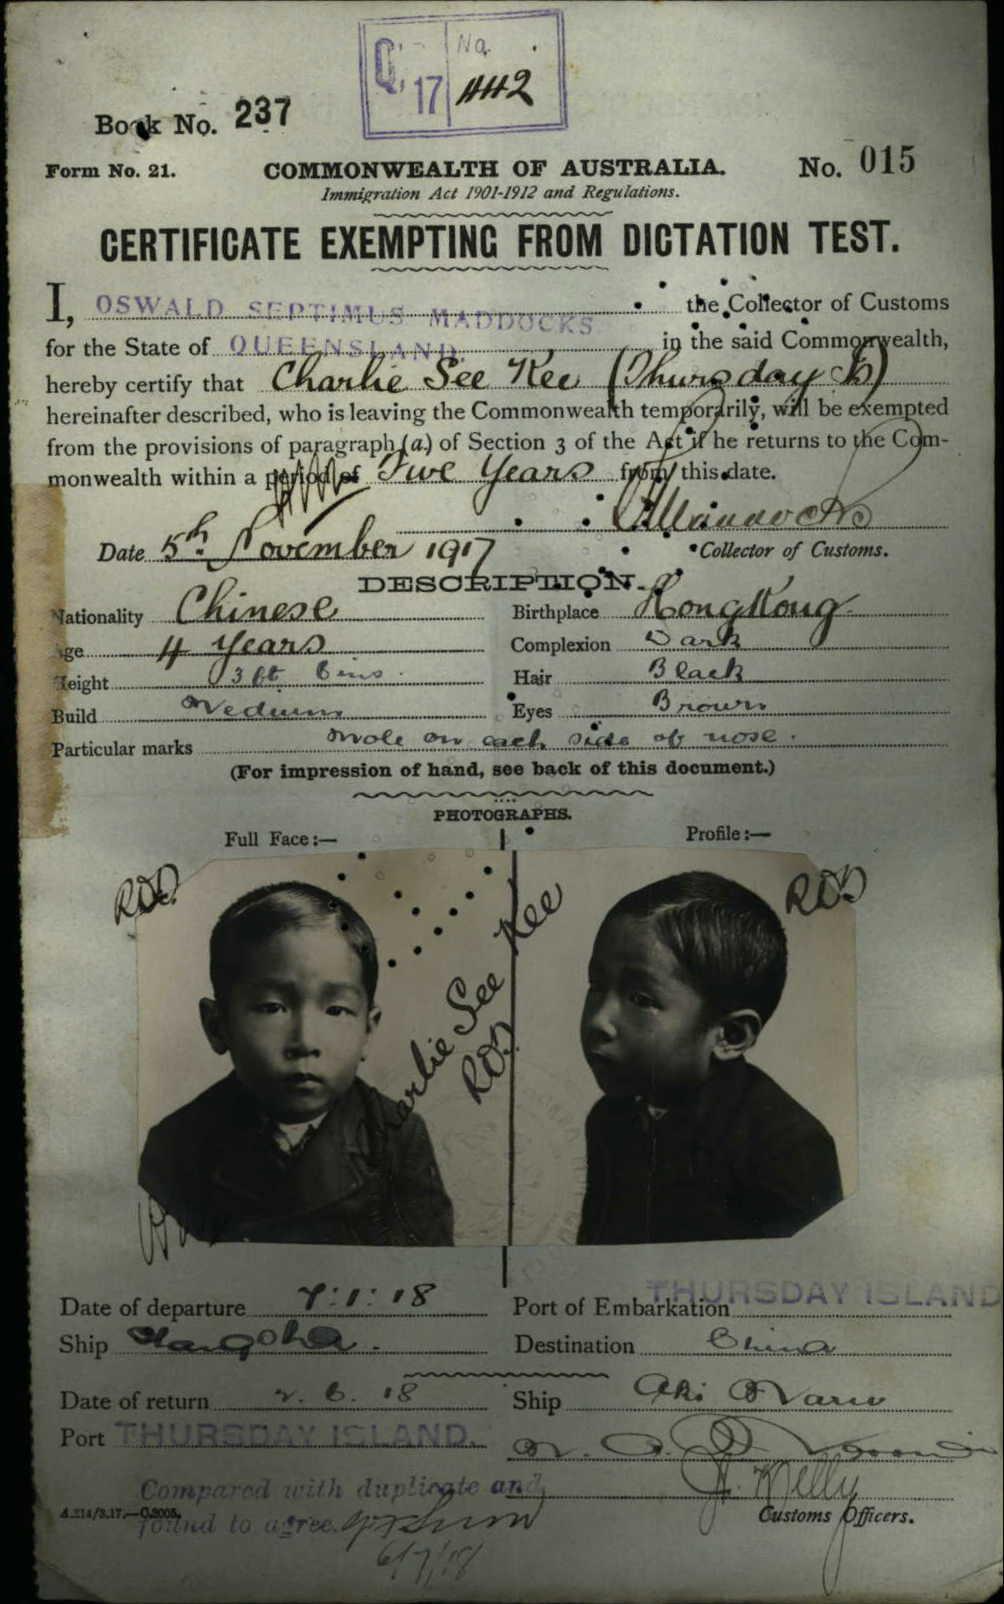 Q. 17 No. 442
Book No. 237
Form No. 21. COMMONWEALTH OF AUSTRALIA. No. 015
Immigration Act 1901-1912 and Regulations.
CERTIFICATE EXEMPTING FROM DICTATION TEST.
I, OSWALD SEPTIMUS MADDOCKS the Collector of Customs
for the State of QUEENSLAND in the said Commonwealth,
hereby certify that Charlie See Kee (Thursday Is)
hereinafter described, who is leaving the Commonwealth temporarily, will be exempted
from the provisions of paragraph (a) of Section 3 of the Act if he returns to the Com-
monwealth within a period of Five Years from this date.
Date 5th November 1917 Collector of Customs.
DESCRIPTION.
Nationality Chinese Birthplace Hong Kong
Age 4 Years Complexion Dark
Height 3 ft 6 ins. Hair Black
Build Medium Eyes Brown
Particular marks Mole on each side of nose.
(For impression of hand, see back of this document.)
PHOTOGRAPHS.
Full Face:— Profile:—
Charlie See Kee
Date of departure 7:1:18 Port of Embarkation THURSDAY ISLAND
Ship Destination China
Date of return 2.6.18 Ship Aki Maru
Port THURSDAY ISLAND.
Kelly
Compared with duplicate and
found to agree.
Customs Officers.
6/7/18